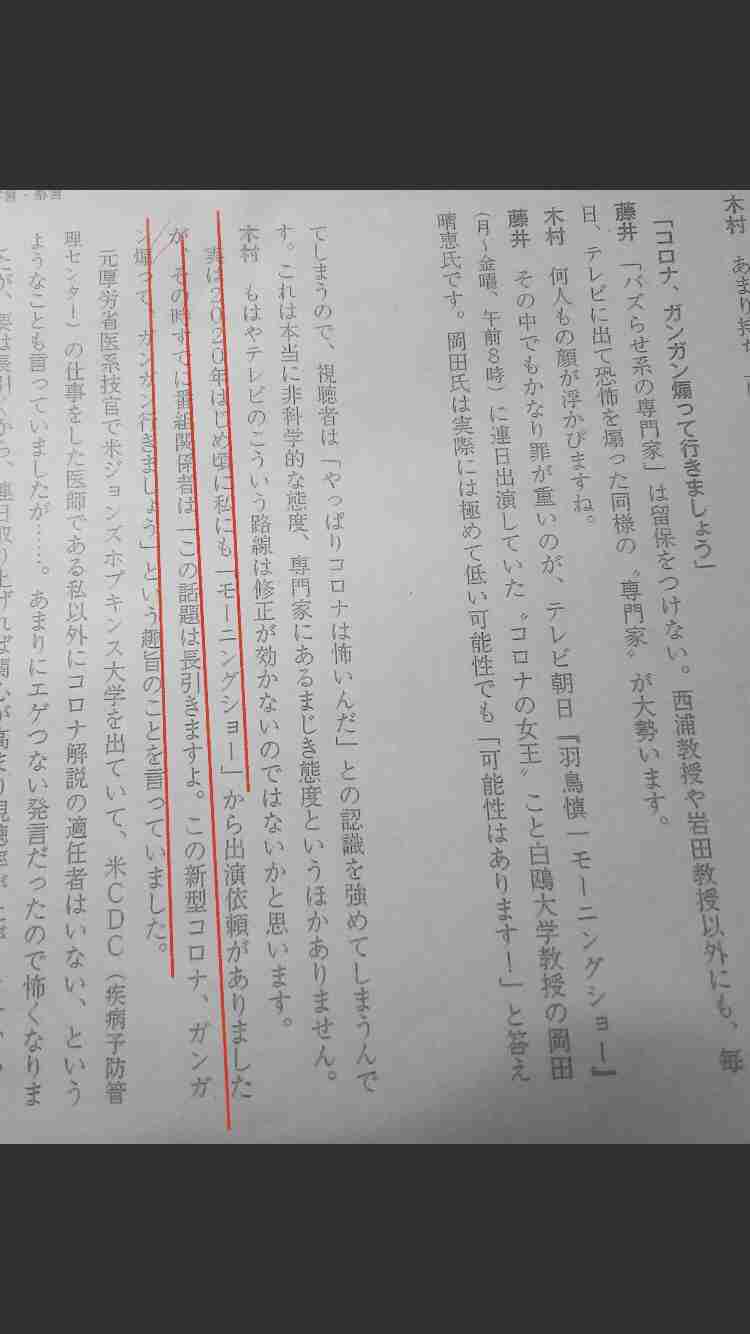 木村　あまり持ち
「コロナ、ガンガン煽って行きましょう」
藤井　「バズらせ系の専門家」は留保をつけない。西浦教授や岩田教授以外にも、毎
日、テレビに出て恐怖を煽った同様の〝専門家〟が大勢います。
木村　何人もの顔が浮かびますね。
藤井　その中でもかなり罪が重いのが、テレビ朝日『羽鳥慎一モーニングショー』
（月〜金曜、午前8時）に連日出演していた〝コロナの女王〟こと白鷗大学教授の岡田
晴恵氏です。岡田氏は実際には極めて低い可能性でも「可能性はあります！」と答え
てしまうので、視聴者は「やっぱりコロナは怖いんだ」との認識を強めてしまうんで
す。これは本当に非科学的な態度、専門家にあるまじき態度というほかありません。
木村　もはやテレビのこういう路線は修正が効かないのではないかと思います。
実は2020年はじめ頃に私にも「モーニングショー」から出演依頼がありました
が、その時すでに番組関係者は「この話題は長引きますよ。この新型コロナ、ガンガ
ン煽って、ガンガン行きましょう」という趣旨のことを言っていました。
元厚労省医系技官で米ジョンズホプキンス大学を出ていて、米CDC（疾病予防管
理センター）の仕事をした医師である私以外にコロナ解説の適任者はいない、という
ようなことも言っていましたが……。あまりにエゲつない発言だったので怖くなりま
したが、要は長引くから、連日取り上げれば関心が高まり視聴率が